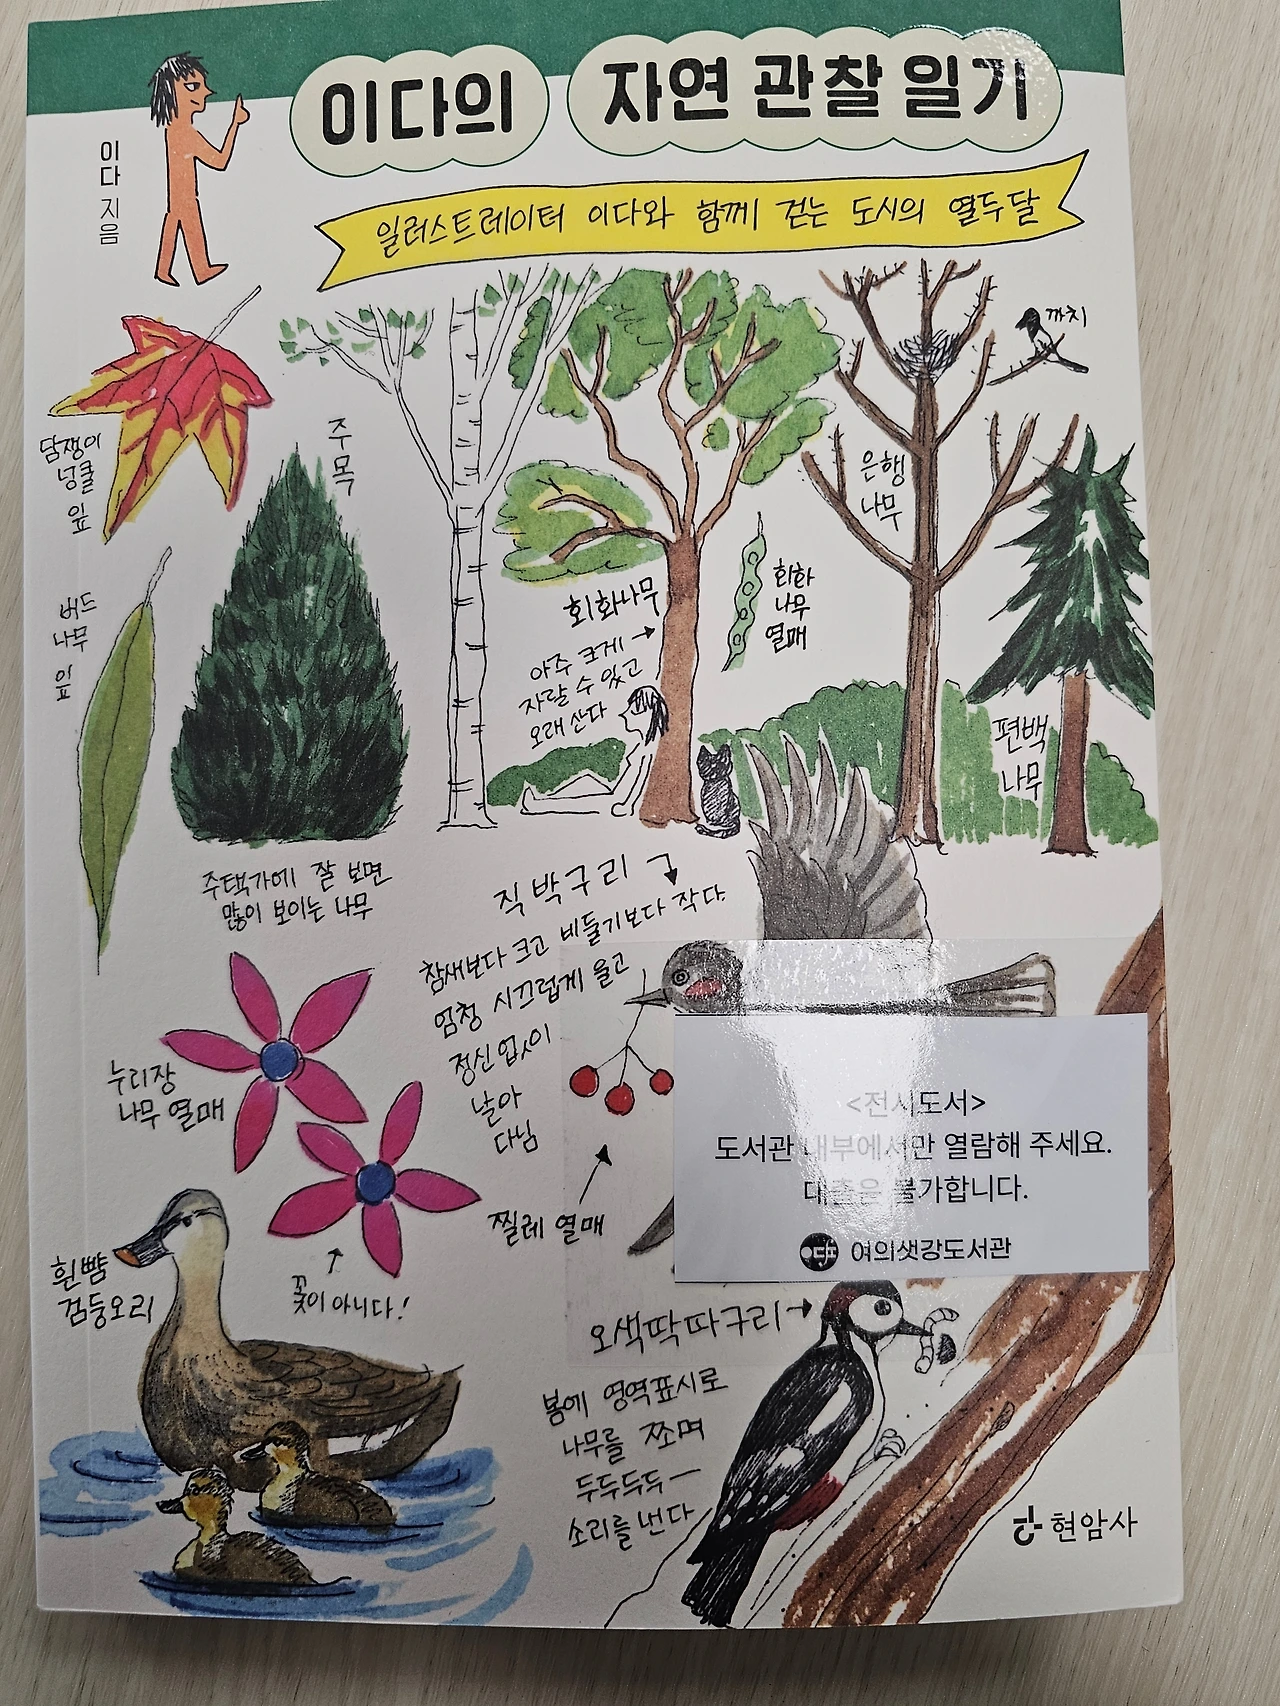 이다의 자연 관찰 일기
이다 지음
일러스트레이터 이다와 함께 걷는 도시의 열두 달
까치
담쟁이
넝쿨
잎
주목
은행
나무
버드
나무
잎
회화나무
아주 크게
자랄 수 있고
오래 산다
회화
나무
열매
편백
나무
주택가에 잘 보면
많이 보이는 나무
직박구리
참새보다 크고 비둘기보다 작다.
엄청 시끄럽게 울고
정신없이
날아
다님
누리장
나무 열매
꽃이 아니다!
찔레 열매
<전시도서>
도서관 내부에서만 열람해 주세요.
대출은 불가합니다.
여의샛강도서관
흰뺨
검둥오리
오색딱따구리
봄에 영역표시로
나무를 쪼며
두두두두—
소리를 낸다
현암사